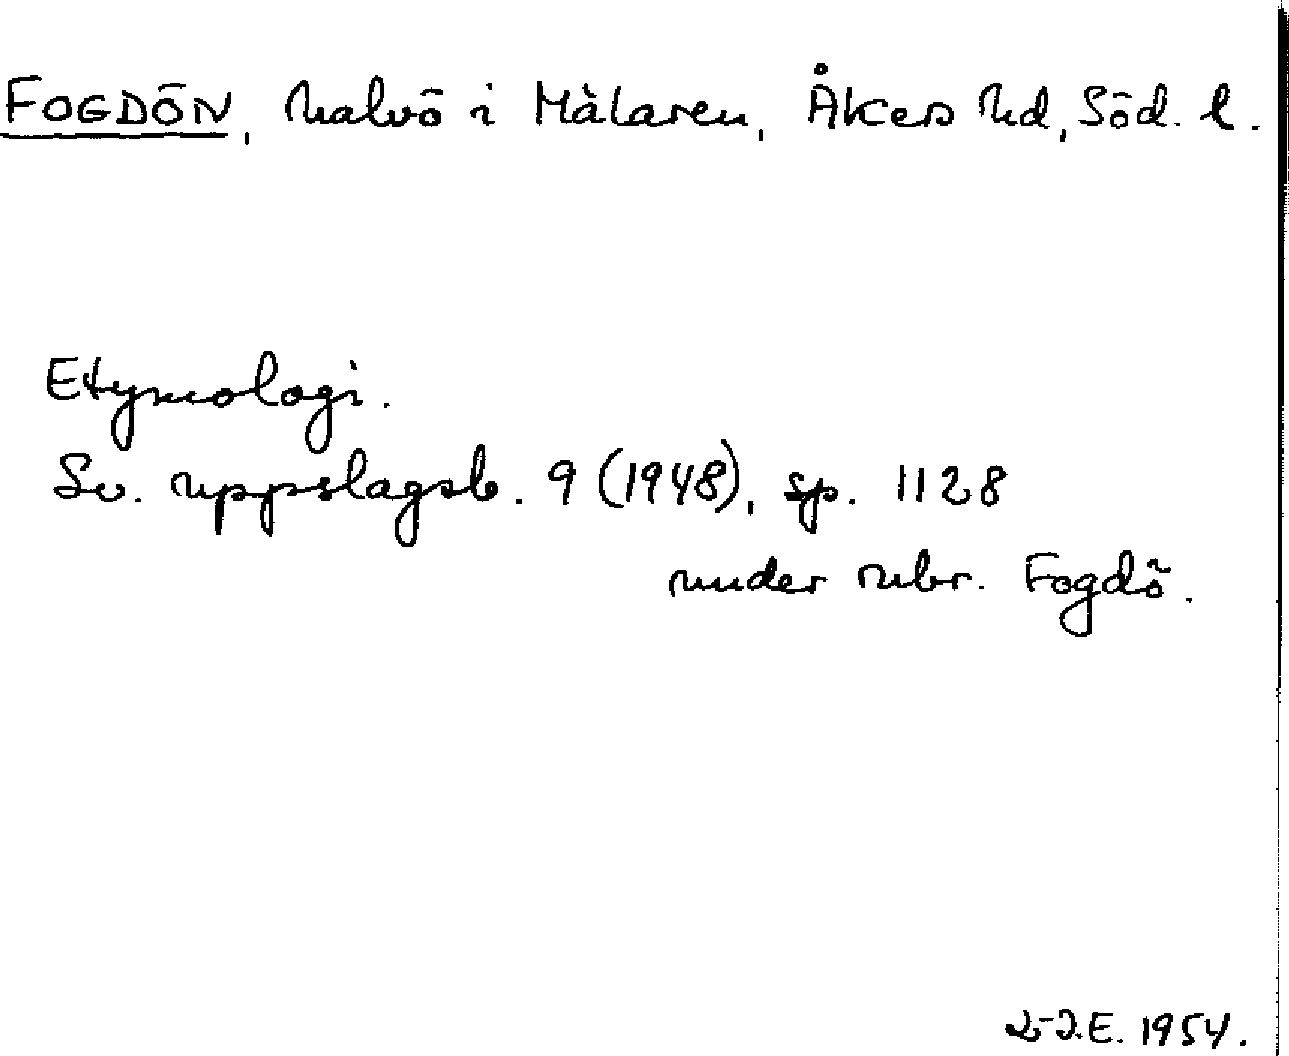 FOGDÖN, halvö i Mälaren, Åkers hd, Söd. l.
Etymologi.
Sv. uppslagsb. 9 (1948), sp. 1128
under rubr. Fogdö.
1954.